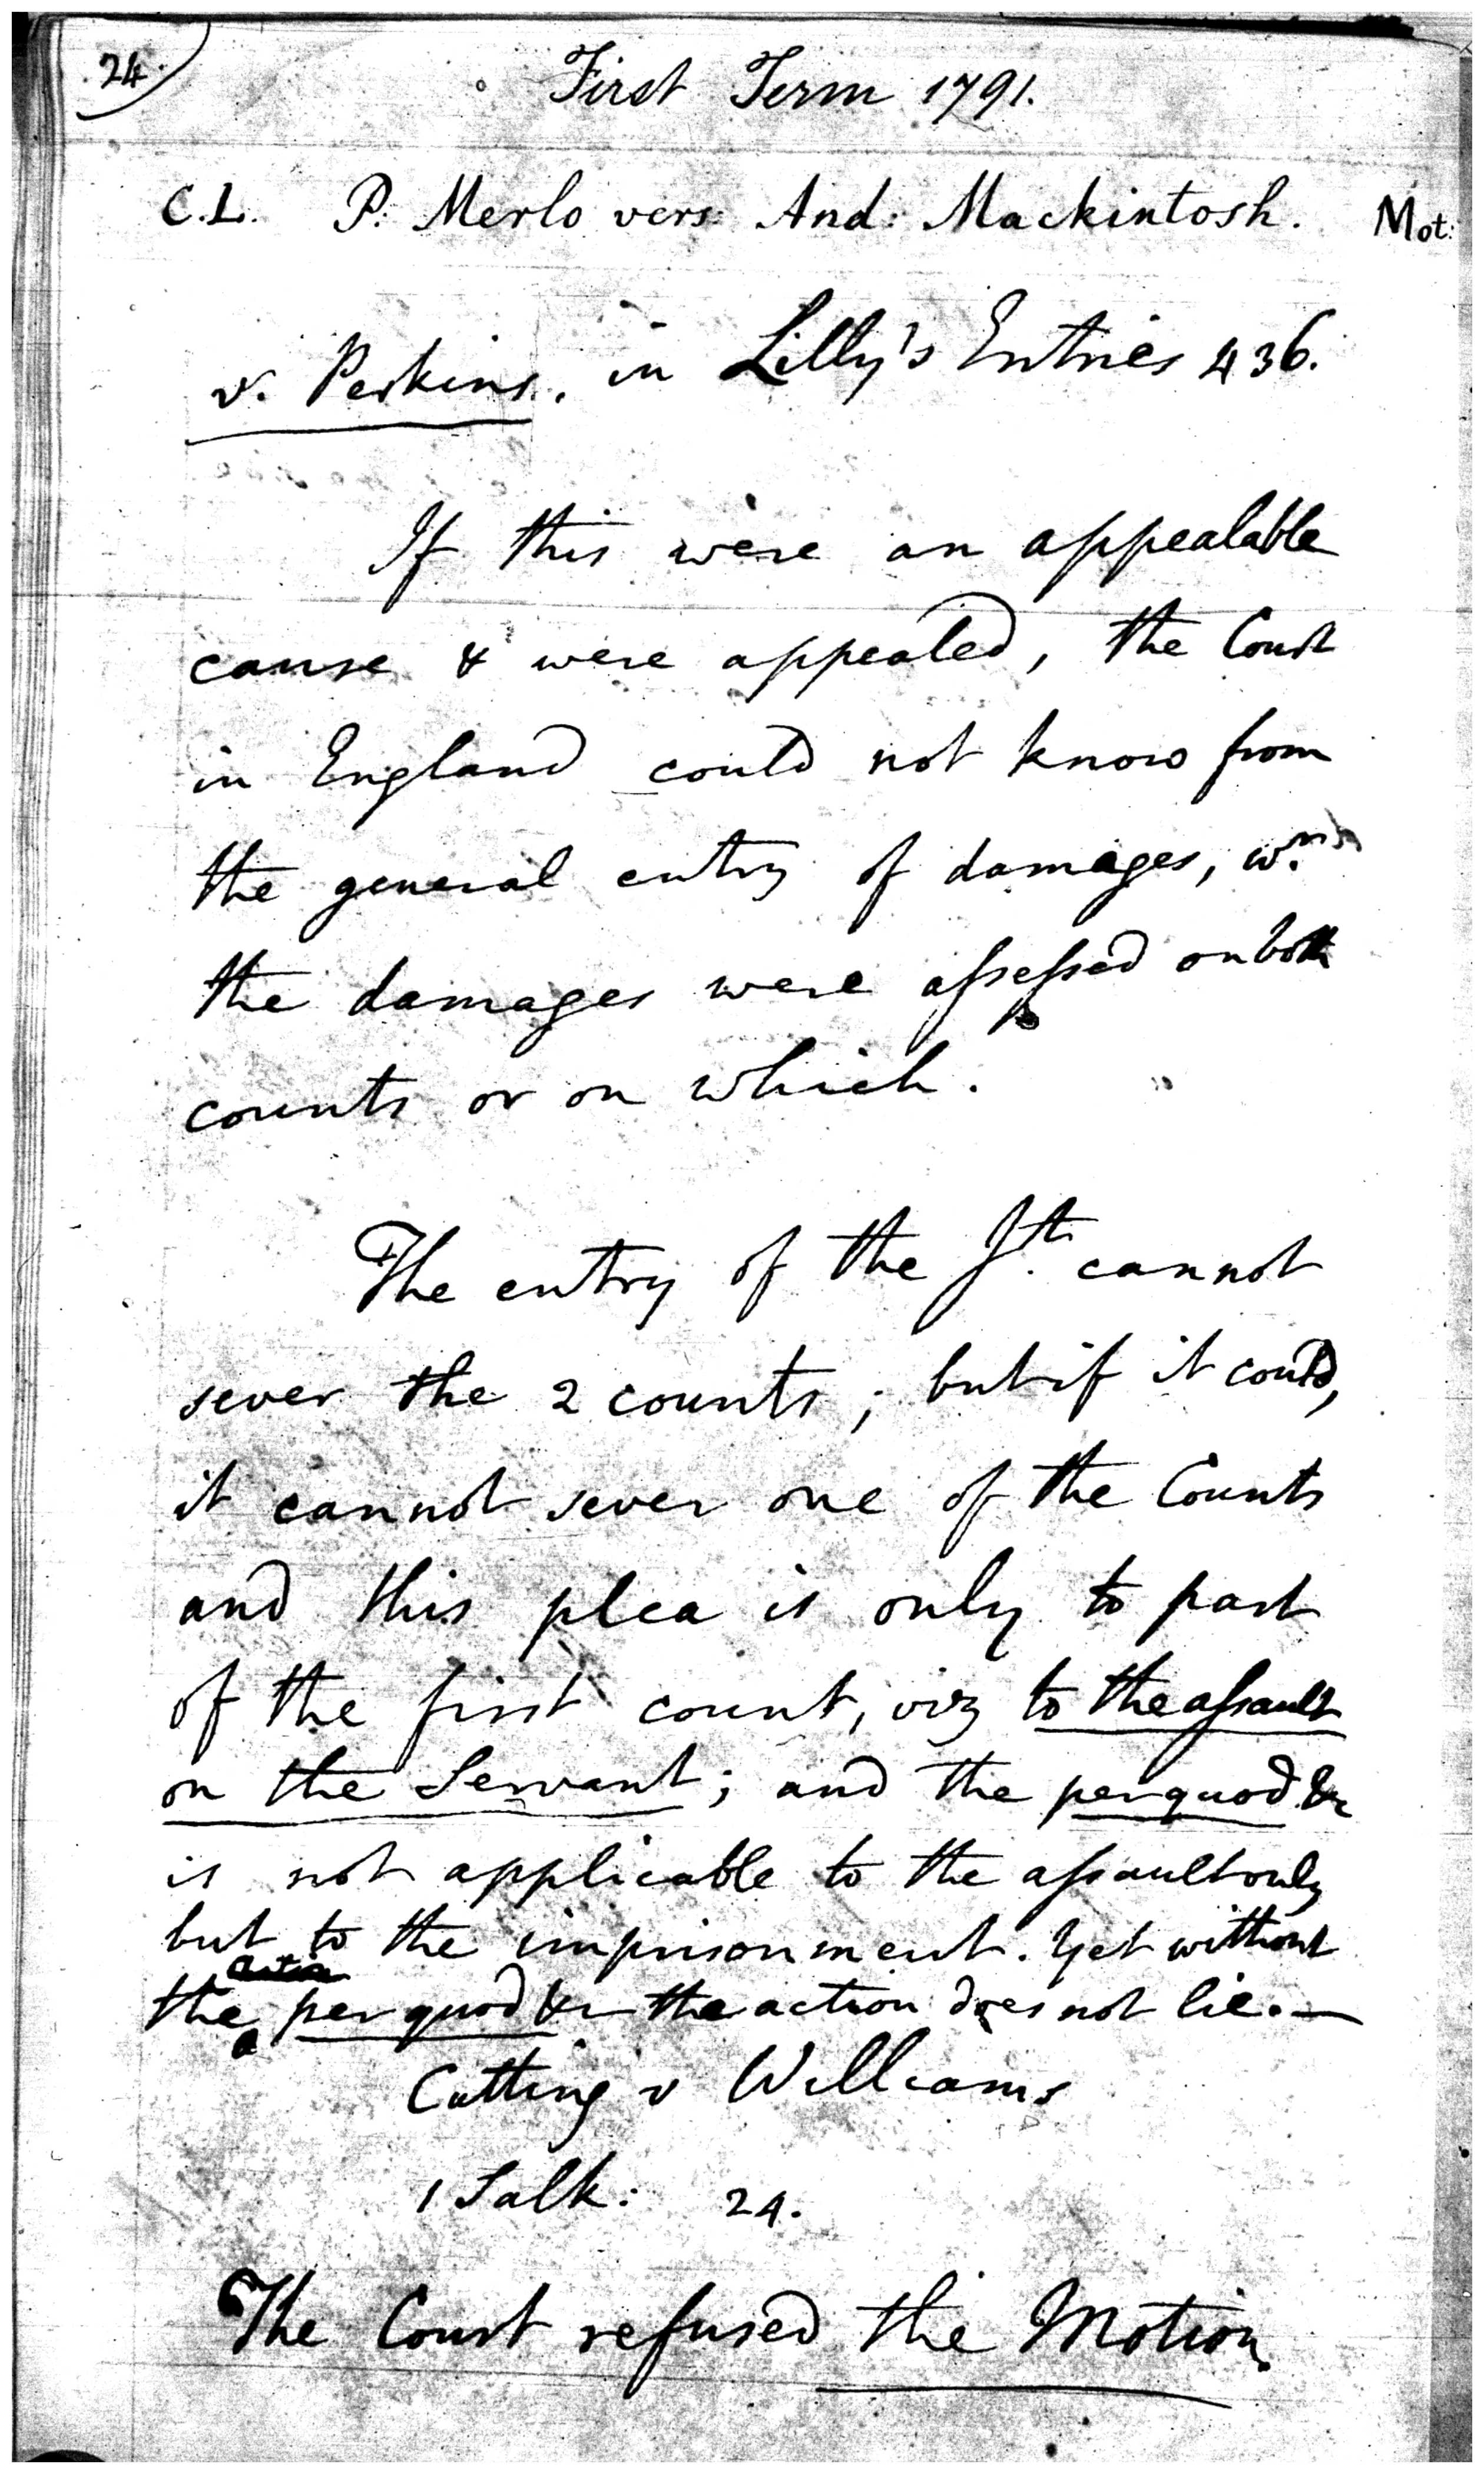 24.
First Term 1791.
C.L. P. Merlo vers: And: Mackintosh. Mot:
v. Perkins. in Lilly's Entries 436.
If this were an appealable
cause & were appealed, the Court
in England could not know from
the general entry of damages, wʳ.
the damages were assessed on both
counts or on which.
The entry of the Jt. cannot
sever the 2 counts; but if it could,
it cannot sever one of the Counts
and this plea is only to part
of the first count, viz to the assault
on the Servant; and the per quod &c
is not applicable to the assault only
but to the imprisonment. Yet without
the per quod &c the action does not lie.—
Cutting v Williams
1 Salk: 24.
The Court refused the Motion.